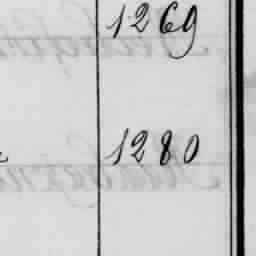 1269
1280